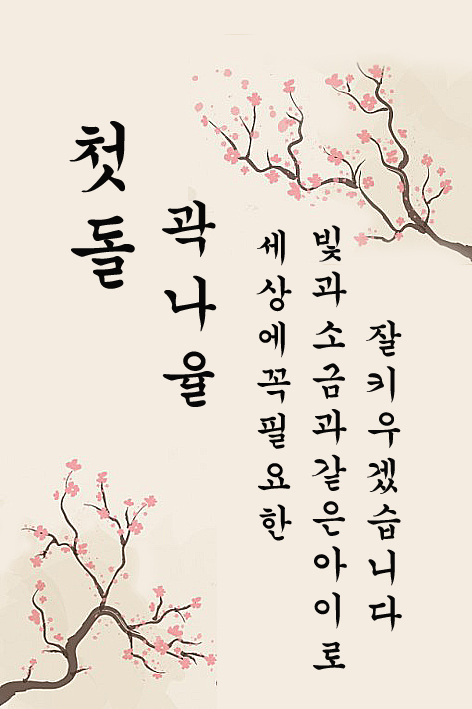 첫돌
곽나율
세상에꼭필요한
빛과소금과같은아이로
잘키우겠습니다